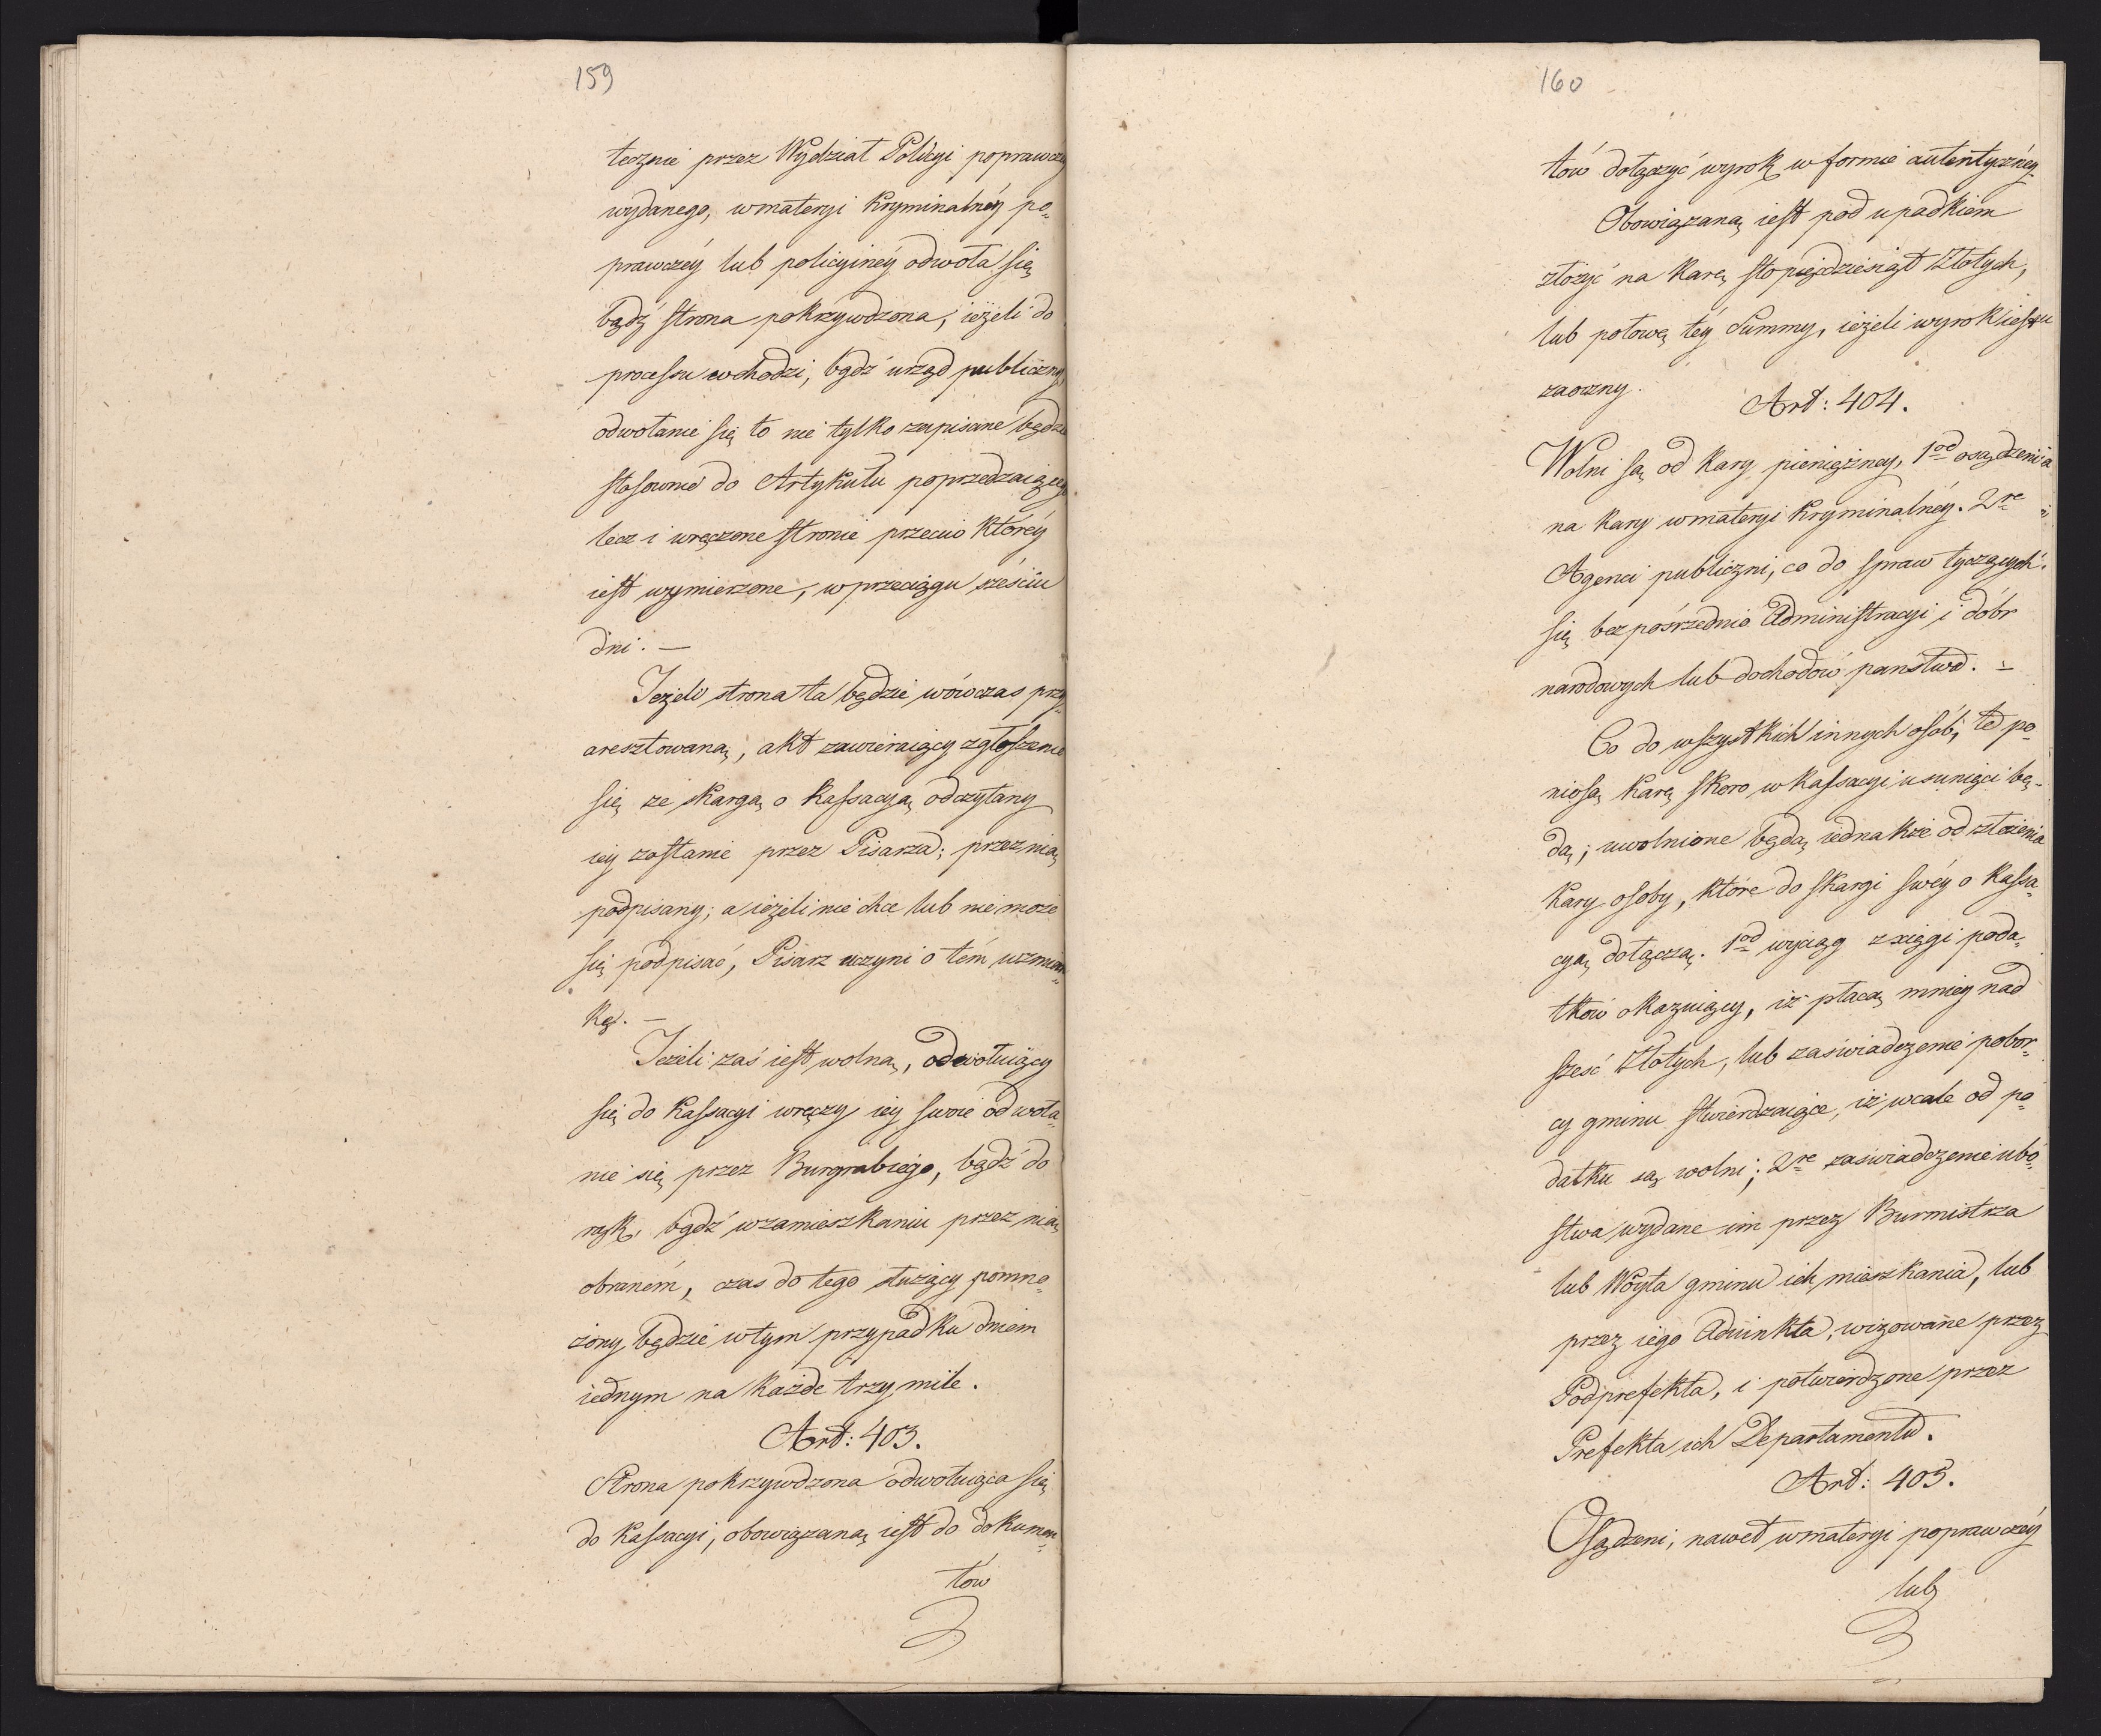 159
tecznie przez Wydział Policyi poprawczey
wydanego, w materyi kryminalnéy po„
prawczéy lub policyinéy odwoła się
bądź strona pokrzywdzona, ieżeli do
processu wchodzi, bądź urząd publiczny,
odwołanie się to nie tylko zapisane będzie
stosownie do Artykułu poprzedzaiącego
lecz i wręczone stronie przeciw któréy
iest wymierzone, w przeciągu sześciu
dni. —
Jeżeli strona ta będzie wówczas przy„
aresztowaną, akt zawieraiący zgłoszenie
się ze skargą o kassacyą odczytany
iey zostanie przez Pisarza; przez nią
podpisany; a ieżeli nie chce lub nie może
się podpisać, Pisarz uczyni o tém wzmian„
kę. —
Jeżeli zaś iest wolną, odwołuiący
się do Kassacyi wręczy iey swoie odwoła„
nie się przez Burgrabiego, bądź do
rąk, bądź w zamieszkaniu przez nią
obraném, czas do tego służący pomno„
żony będzie w tym przypadku dniem
iednym na każde trzy mile.
Art: 403.
Strona pokrzywdzona odwołuiąca się
do Kassacyi, obowiązaną iest do dokumen„
tów
160
tów dołączyć wyrok w formie autentycznéy.
Obowiązaną iest pod upadkiem
złożyć na karę sto pięćdziesiąt Złotych,
lub połowę téy Summy, ieżeli wyrok iest
zaoczny.
Art: 404.
Wolni są od kary pieniężney, 1od osądzenia
na kary w materyi kryminalnéy. 2re
Agenci publiczni, co do spraw tyczących
się bezpośrzednio Administracyi i dóbr
narodowych lub dochodów państwa. —
Co do wszystkich innych osób, te po„
niosą karę skoro w Kassacyi usunięci bę„
dą; uwolnione będą iednakże od złożenia
kary osoby, które do skargi swéy o kassa„
cyą dołączą. 1od wyciąg z xięgi poda„
tków okazuiący, iż płacą mniey nad
sześć Złotych, lub zaświadczenie pobor„
cy gminu stwierdzaiące, iż wcale od po„
datku są wolni; 2re zaświadczenie ubó„
stwa wydane im przez Burmistrza
lub Wóyta gminu ich mieszkania, lub
przez iego Adiunkta, wizowane przez
Podprefekta, i potwierdzone przez
Prefekta ich Departamentu.
Art: 405.
Osądzeni, nawet w materyi poprawczéy
lub